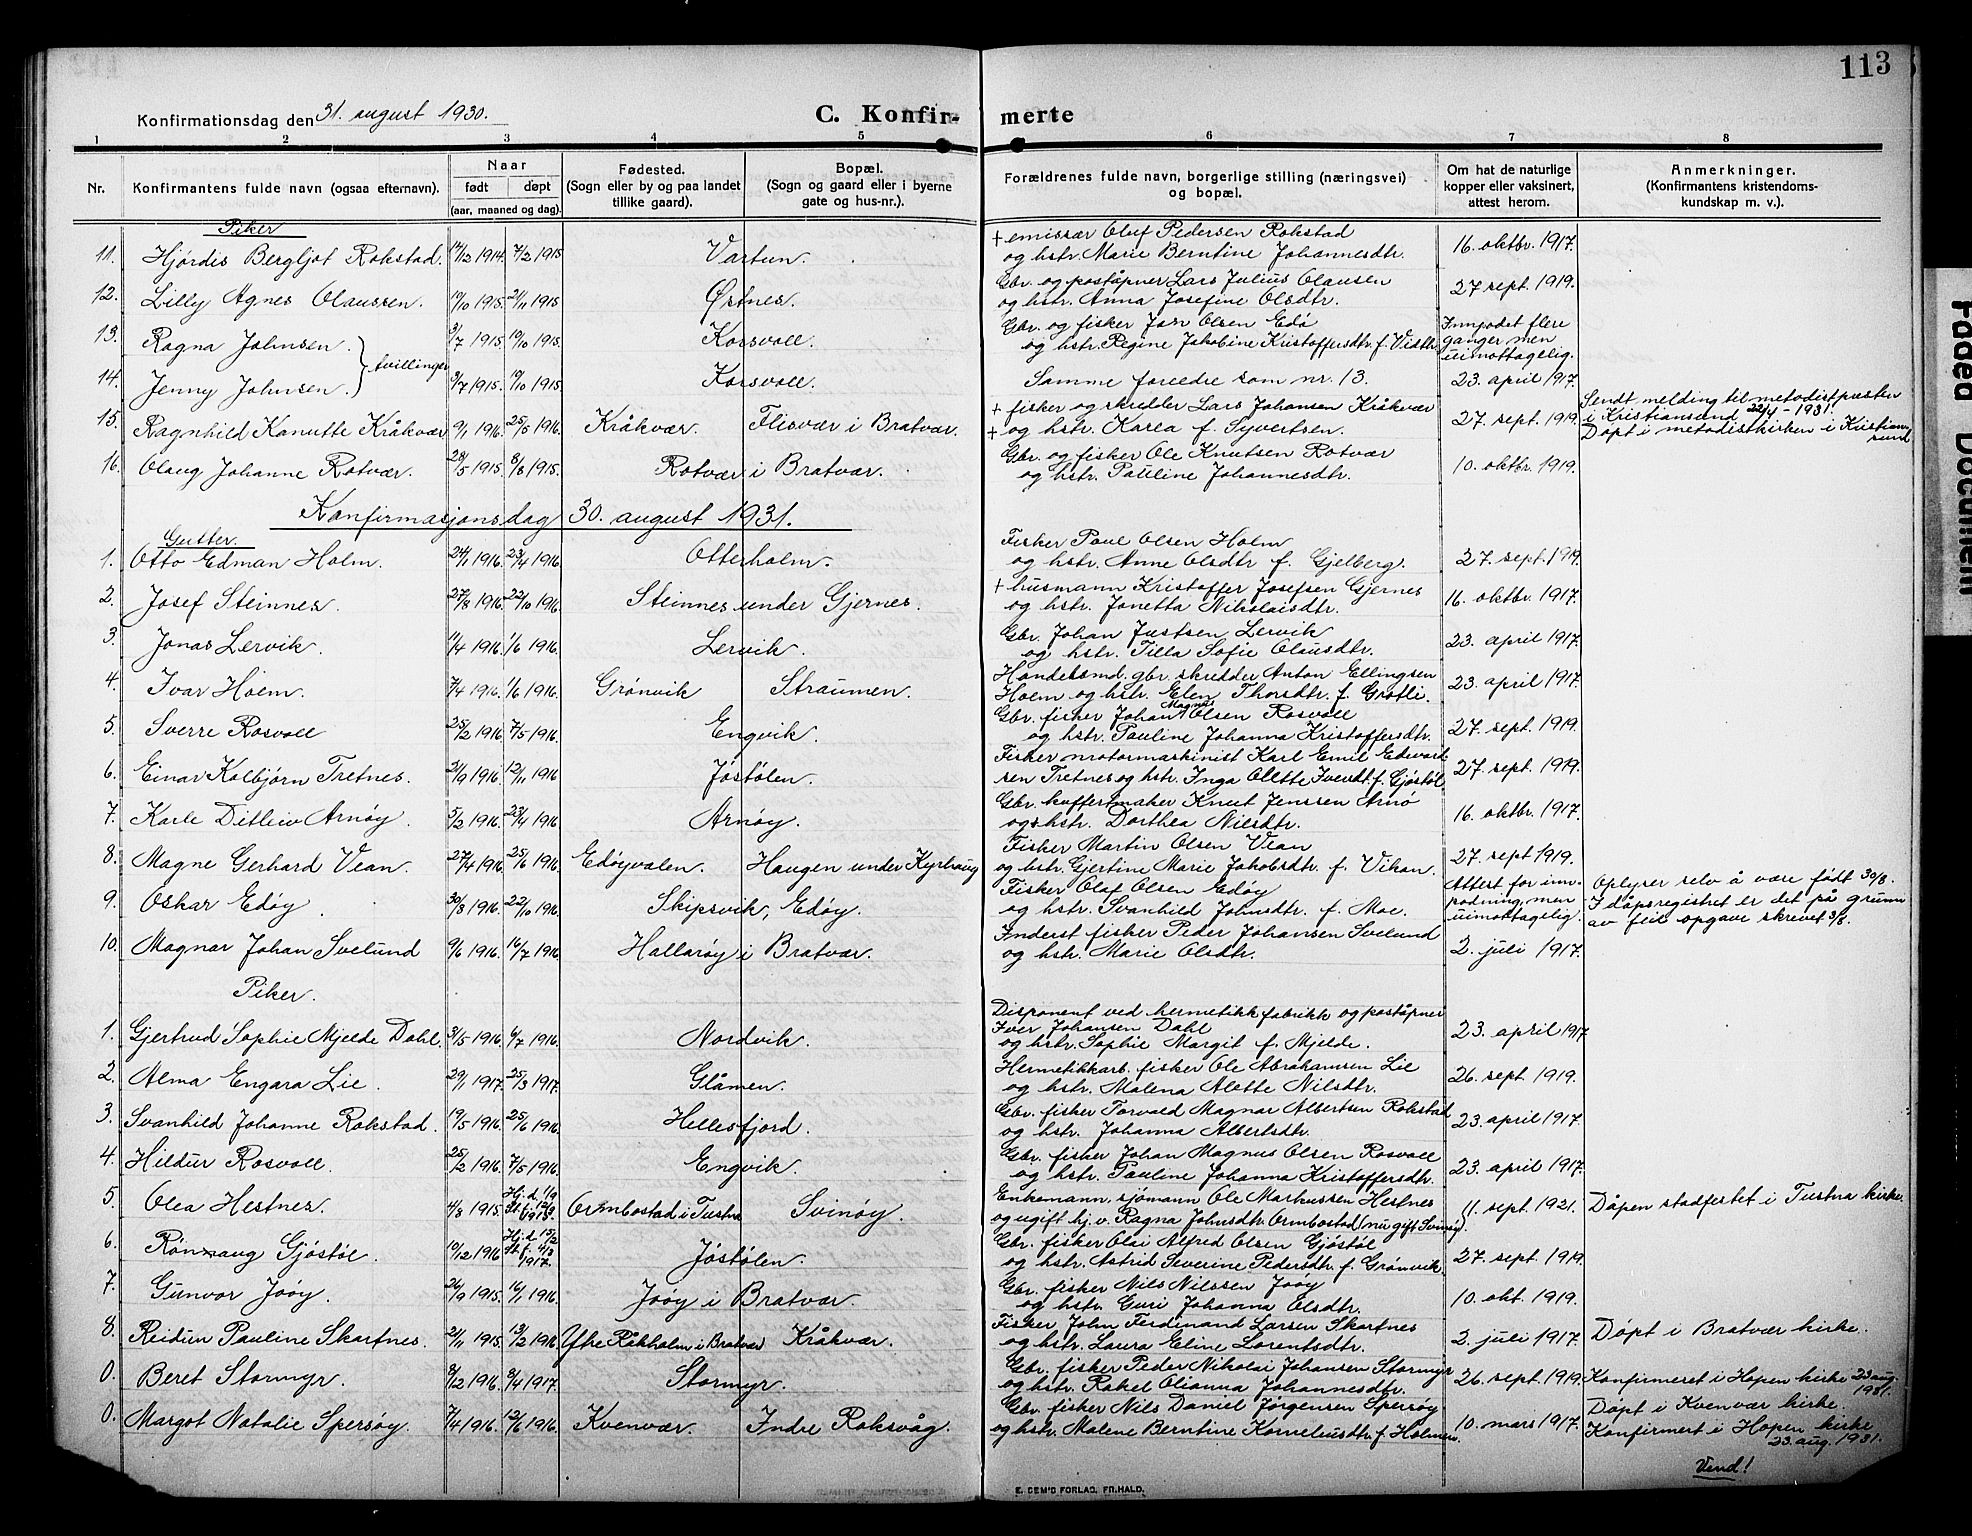 113
Konfirmationsdag den 31. august 1930. C. Konfir- merte
1 2 3 4 5 6 7 8
Nr. Konfirmantens fulde navn (ogsaa efternavn). Naar født døpt (aar, maaned og dag). Fødested. (Sogn eller by og paa landet tillike gaard). Bopæl. (Sogn og gaard eller i byerne gate og hus-nr.). Forældrenes fulde navn, borgerlige stilling (næringsvei) og bopæl. Om hat de naturlige kopper eller vaksinert, attest herom. Anmerkninger. (Konfirmantens kristendoms- kundskap m. v.).
Piker
11. Hjørdis Bergljot Rokstad. 17/12 1914. 7/2 1915 Vartun. + emissær Oluf Pedersen Rokstad og hstr. Marie Berntine Johannesdtr. 16. oktbr. 1917.
12. Lilly Agnes Olaussen. 19/10 1915. 21/11 1915 Østnes. Gbr. og poståpner Lars Julius Olausen og hstr. Anna Josefine Olsdtr. 27 sept. 1919.
13. Ragna Johnsen. tvillinger 3/7 1915. 10/10 1915. Korsvoll. Gbr. og fisker John Olsen Edø og hstr. Regine Jakobine Kristoffersdtr. f. Vidthr. Innpodet flere ganger men uimottagelig.
14. Jenny Johnsen. 3/7 1915. 10/10 1915. Korsvoll. Samme foreldre som nr. 13. 23. april 1917.
15. Ragnhild Kanutte Kråkvær 9/1 1916. 25/5 1916. Kråkvær. Flisvær i Bratvær. + fisker og skredder Lars Johansen Kråkvær + og hstr. Karla f. Syvertsen. 27. sept. 1919. Sendt melding til metodistpresten i Kristiansund 22/4 - 1931. Døpt i metodistkirken i Kristiansund
16. Olaug Johanne Rotvær. 28/5 1915. 8/8 1915. Rotvær i Bratvær. Gbr. og fisker Ole Knutsen Rotvær og hstr. Pauline Johannesdtr. 10. oktbr. 1919.
Konfirmasjonsdag 30. august 1931.
Gutter.
1. Otto Edman Holm. 24/1 1916. 23/4 1916. Otterholm. Fisker Paul Olsen Holm og hstr. Anne Olsdtr f. Gjelberg. 27. sept. 1919.
2. Josef Steinnes. 27/8 1916. 22/10 1916. Steinnes under Gjernes. + husmann Kristoffer Josefsen Gjernes og hstr. Jonetta Nikolaisdtr. 16. oktbr. 1917.
3. Jonas Lervik. 11/4 1916. 1/6 1916. Lervik. Gbr. Johan Justsen Lervik og hstr. Tilla Sofie Olausdtr. 23. april 1917.
4. Ivar Holm. 7/4 1916. 1/6 1916. Grønvik Straumen. Handelsmd. gbr. skredder Anton Ellingsen Holm og hstr. Elen Thorsdtr. f. Grøtli. 23. april 1917.
5. Sverre Rosvoll 25/2 1916. 7/5 1916. Engvik. Gbr. fisker Johan Magnus Olsen Rosvoll og hstr. Pauline Johanna Kristoffersdtr. 27. sept. 1919.
6. Einar Kolbjørn Tretnes. 21/9 1916. 12/11 1916 Jøstølen. Fisker motormaskinist Karl Emil Edvardsen Tretnes og hstr. Inga Olette Ivendt. f. Gjøstøl. 27. sept. 1919.
7. Karle Ditleiv Arnøy. 5/2 1916. 23/4 1916 Arnøy. Gbr. kuffertmaker Knut Jenssen Arnø og hstr. Dorthea Nilsdtr. 16. oktbr. 1917.
8. Magne Gerhard Vean. 27/4 1916. 25/6 1916. Edøyvalen. Haugen under Kyrhaug Fisker Martin Olsen Vean og hstr. Gjertine Marie Jakobsdtr. f. Vikan. 27. sept 1919.
9. Oskar Edøy. 30/8 1916. 22/10 1916. Skipsvik, Edøy. Fisker Olaf Olsen Edøy og hstr. Svanhild Johnsdtr. f. Moe. Attest for innpodning, men uimottagelig. Oplyser selv å være født 30/8. I dåpsregistret er det på grunn av feil opgave skrevet 3/8.
10. Magnar Johan Svelund 9/6 1916. 16/7 1916. Hallarøy i Bratvær. Inderst fisker Peder Johansen Svelund og hstr. Marie Olsdtr. 2. juli 1917.
Piker.
1. Gjertrud Sophie Mjelde Dahl. 31/5 1916. 6/7 1916. Nordvik. Disponent ved hermetikkfabrikk og poståpner Iver Johansen Dahl og hstr. Sophie Margit f. Mjelde. 23. april 1917
2. Alma Engara Lie. 29/1 1917. 25/3 1917. Glåmen. Hermetikkarb. fisker Ole Abrahamsen Lie og hstr. Malena Alette Nilsdtr. 26. sept. 1919.
3. Svanhild Johanne Rokstad. 19/5 1916. 25/6 1916. Hellesfjord. Gbr. fisker Torvald Magnar Albertsen Rokstad og hstr. Johanna Albertsdtr. 23. april 1917.
4. Hildur Rosvoll. 25/2 1916. 7/5 1916. Engvik. Gbr. fisker Johan Magnus Olsen Rosvoll og hstr. Pauline Johanna Kristoffersdtr. 23. april 1917.
5. Olea Hestnes. 4/8 1915. Hj.d. 1/9 St.f. 12/9 1915. Ormbostad i Tustna Svinøy. Enkemann, sjømann Ole Markussen Hestnes og ugift hj. v. Ragna Johnsdtr. Ormbostad (nu gift Svinøy). 11. sept. 1921. Dåpen stadfestet i Tustna kirke.
6. Rønnaug Gjøstøl. 10/12 1916 Hj.d. 15/2 St.f. 4/3 1917. Jøstølen. Gbr. fisker Olai Alfred Olsen Gjøstøl og hstr. Astrid Severine Pedersdtr. f. Grønvik. 27. sept. 1919.
7. Gunvor Joøy. 26/9 1915. 16/1 1916. Joøy i Bratvær. Gbr. fisker Nils Nilssen Joøy og hstr. Guri Johanna Olsdtr. 10. okt. 1919.
8. Reidun Pauline Skartnes. 21/11 1915. 13/2 1916. Ytre Råkholm i Bratvær Kråkvær. Fisker John Ferdinand Larsen Skartnes og hstr. Laura Eline Lorentsdtr. 2. juli 1917. Døpt i Bratvær kirke.
0. Beret Stormyr. 8/12 1916. 3/4 1917. Stormyr. Gbr. fisker Peder Nikolai Johansen Stormyr og hstr. Rakel Olianna Johannesdtr. 26. sept. 1919. Konfirmeret i Hopen kirke 23 aug. 1931.
0. Margot Natalie Spersøy. 7/4 1916. 12/6 1916. Kvenvær. Indre Roksvåg. Gbr. fisker Nils Daniel Jørgensen Spersøy og hstr. Malene Berntine Korneliusdtr. f. Holmen. 10. mars 1917. Døpt i Kvenvær kirke. Konfirmert i Hopen kirke 23. aug. 1931.
Vend!
E. SEM'S FORLAG, FR.HALD.
Faded Document